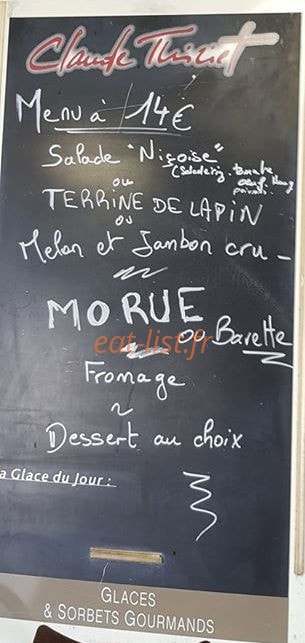 Claude Thiriet
Menu à 14€
Salade "Niçoise"
ou
TERRINE DE LAPIN
ou
Melon et Jambon cru -
MORUE
ou Bavette
eat-list.fr
Fromage
~
Dessert au choix
a Glace du Jour :
GLACES
& SORBETS GOURMANDS